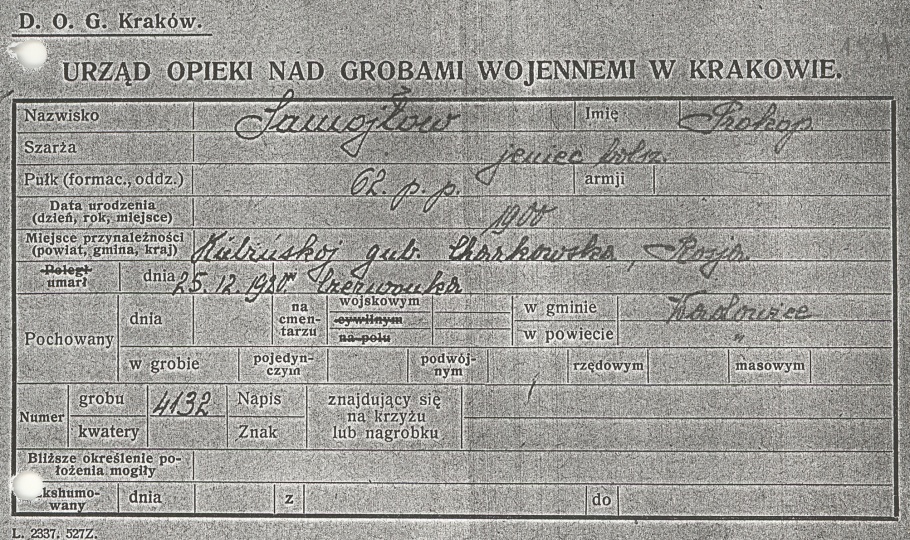 D. O. G. Kraków.
URZĄD OPIEKI NAD GROBAMI WOJENNEMI W KRAKOWIE.
Nazwisko Samojłow Imię Prokop
Szarża jeniec bolsz.
Pułk (formac., oddz.) 62. p. p. armji
Data urodzenia
(dzień, rok, miejsce) 1900
Miejsce przynależności
(powiat, gmina, kraj) gub. Charkowska, Rosja
Poległ
umarł dnia 25. 12. 1920 czerwonka
Pochowany dnia na cmentarzu wojskowym w gminie Wadowice
cywilnym
na polu w powiecie "
w grobie pojedyn-
czym podwój-
nym rzędowym masowym
Numer grobu 4132 Napis znajdujący się
na krzyżu
kwatery Znak lub nagrobku
Bliższe określenie po-
łożenia mogiły
kshumo-
wany dnia z do
L. 2337. 527Z.